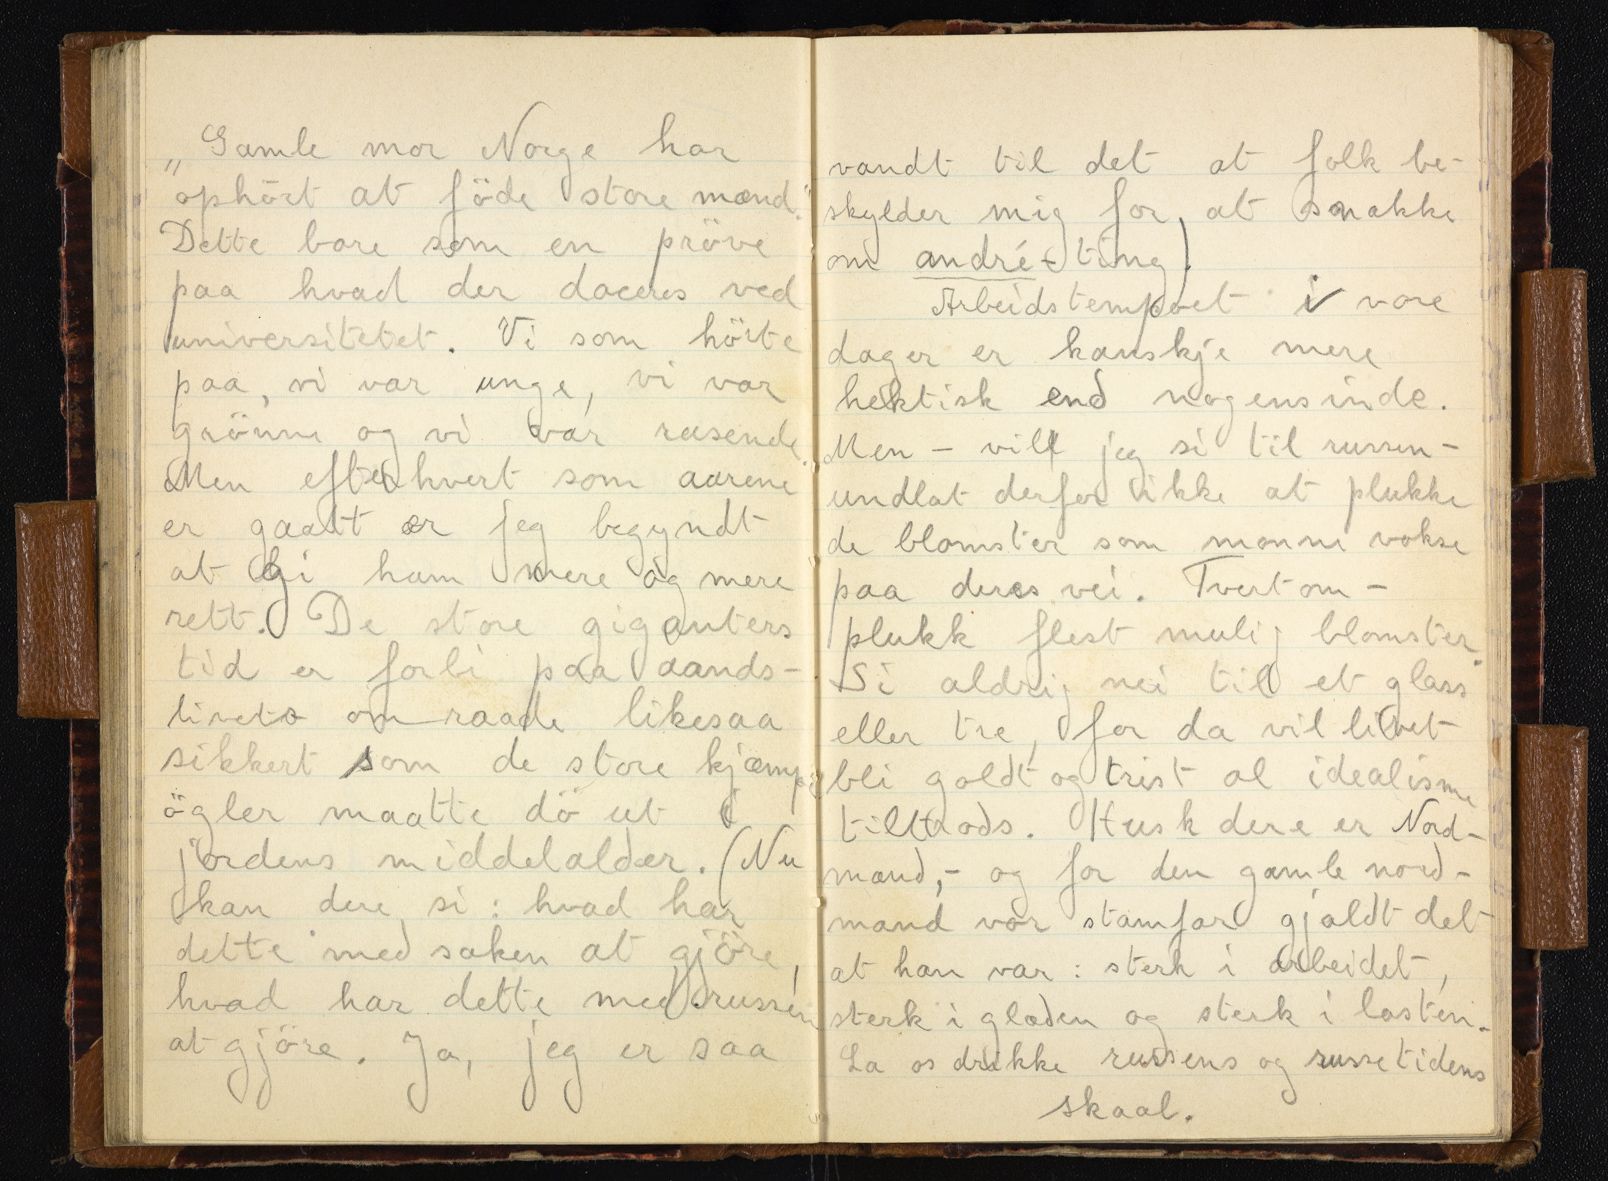 „Gamle mor Norge har
ophört at föde store mænd."
Dette bare som en pröve
paa hvad der doceres ved
universitetet. Vi som hörte
paa, vi var unge, vi var
grönne og vi var rasende.
Men efterhvert som aarene
er gaatt er jeg begyndt
at gi ham mere og mere
rett. De store giganters
tid er forbi paa aands-
livets omraade likesaa
sikkert som de store kjæmpe
ögler maatte dö ut i
jordens middelalder. (Nu
kan dere si: hvad har
dette med saken at gjöre,
hvad har dette med russen
at gjöre. Ja, jeg er saa
vandt til det at folk be-
skylder mig for, at snakke
om andré-ting)
Arbeidstempoet i vore
dager er kanskje mere
hektisk end nogensinde.
Men - vil jeg si til russen -
undlat derfor ikke at plukke
de blomster som monne vokse
paa deres vei. Tvertom -
plukk flest mulij blomster.
Si aldrij nei til et glass
eller tre, for da vil livet
bli goldt og trist al idealisme
tiltrods. Husk dere er Nord-
mænd,- og for den gamle nord-
mand vor stamfar gjaldt det
at han var: sterk i arbeidet,
sterk i glæden og sterk i lasten.
La os drikke russens og russetidens
skaal.